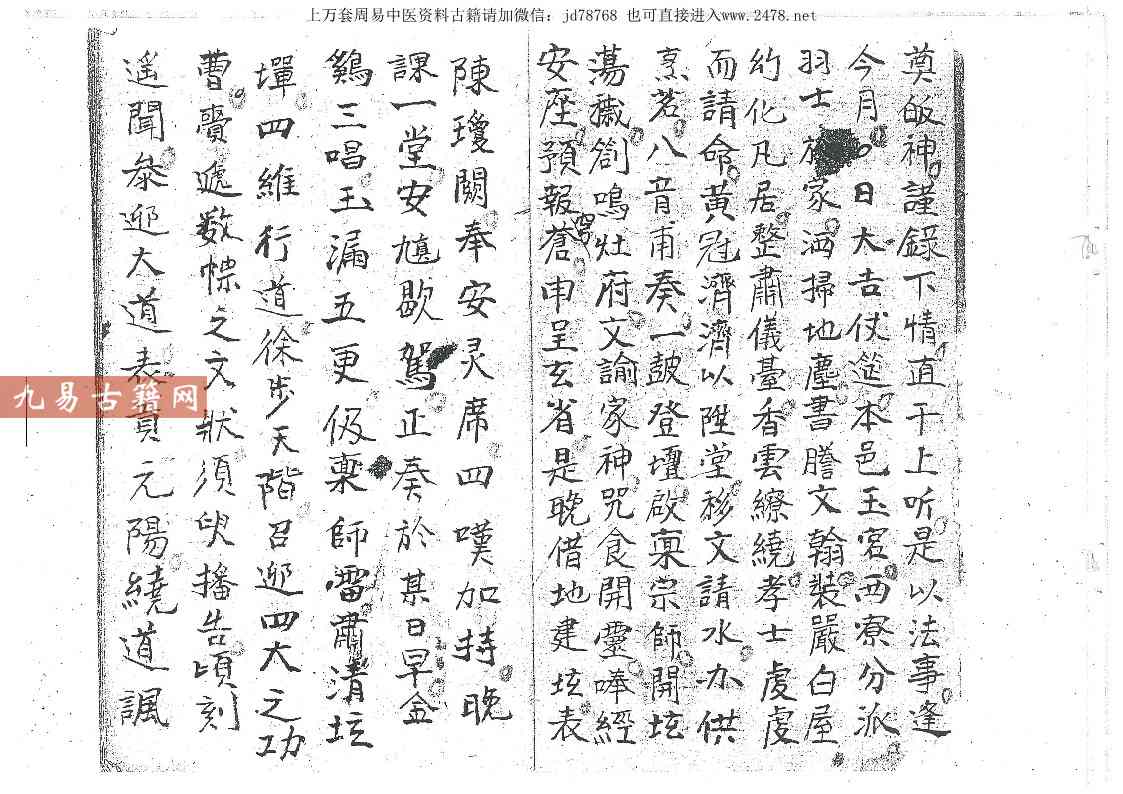 上万套周易中医资料古籍请加微信：jd78768 也可直接进入www.2478.net
奠皈神謹錄下情直干上听是以法事逢
今月〇日大吉仗筵本邑玉宮西寮分派
羽士於家洒掃地塵書謄文翰裝嚴白屋
幻化凡居整肅儀臺香雲繚繞孝士虔虔
而請命黃冠濟濟以陞堂移文請水办供
烹茗八音甫奏一皷登壇啟稟宗師開坛
蕩穢劄鳴灶府文諭家神咒食開靈唪經
安座預報蒼穹申呈玄省是晚借地建坛表
陳瓊闕奉安灵席四嘆加持晚
課一堂安魂歇駕正奏於某日早金
鷄三唱玉漏五更伋稟師雷肅清坛
墠四維行道徐步天階召迎四大之功
曹賷遞数幖之文狀須臾播告頃刻
遥聞叅迎大道表貢元陽繞道諷
九易古籍网